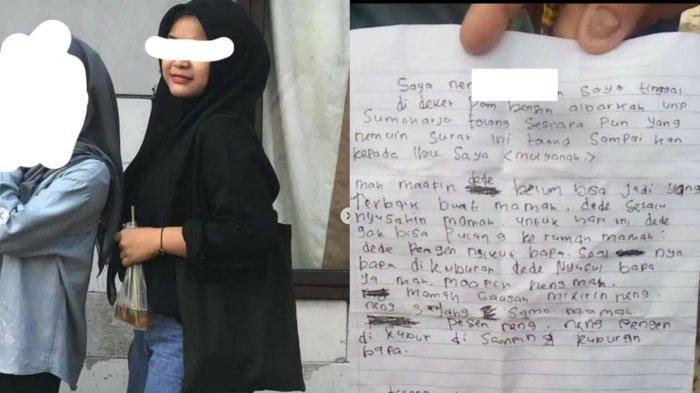 Saya nen Saya tinggal
di deket pom bensin albarkah unp
Sumoharjo tolong Sesiapa Pun yang
nemuin Surat Ini Sampai kan
kepada Ibu Saya
mah maafin dede belum bisa Jadi yang
Terbaik buat mamah. dede Selalu
Nyusahin mamah. untuk hari ini. dede
gak bisa Pulang ke rumah mamah.
dede Pengen Ngikut bapa. nya
bapa di kuburan dede Nyusul bapa
Ya mah. maafin neng mah.
mamah Gausah mikirin neng.
neng Sayang Sama mamah.
Pesen neng. neng Pengen
di kubur di Samping kuburan
bapa.